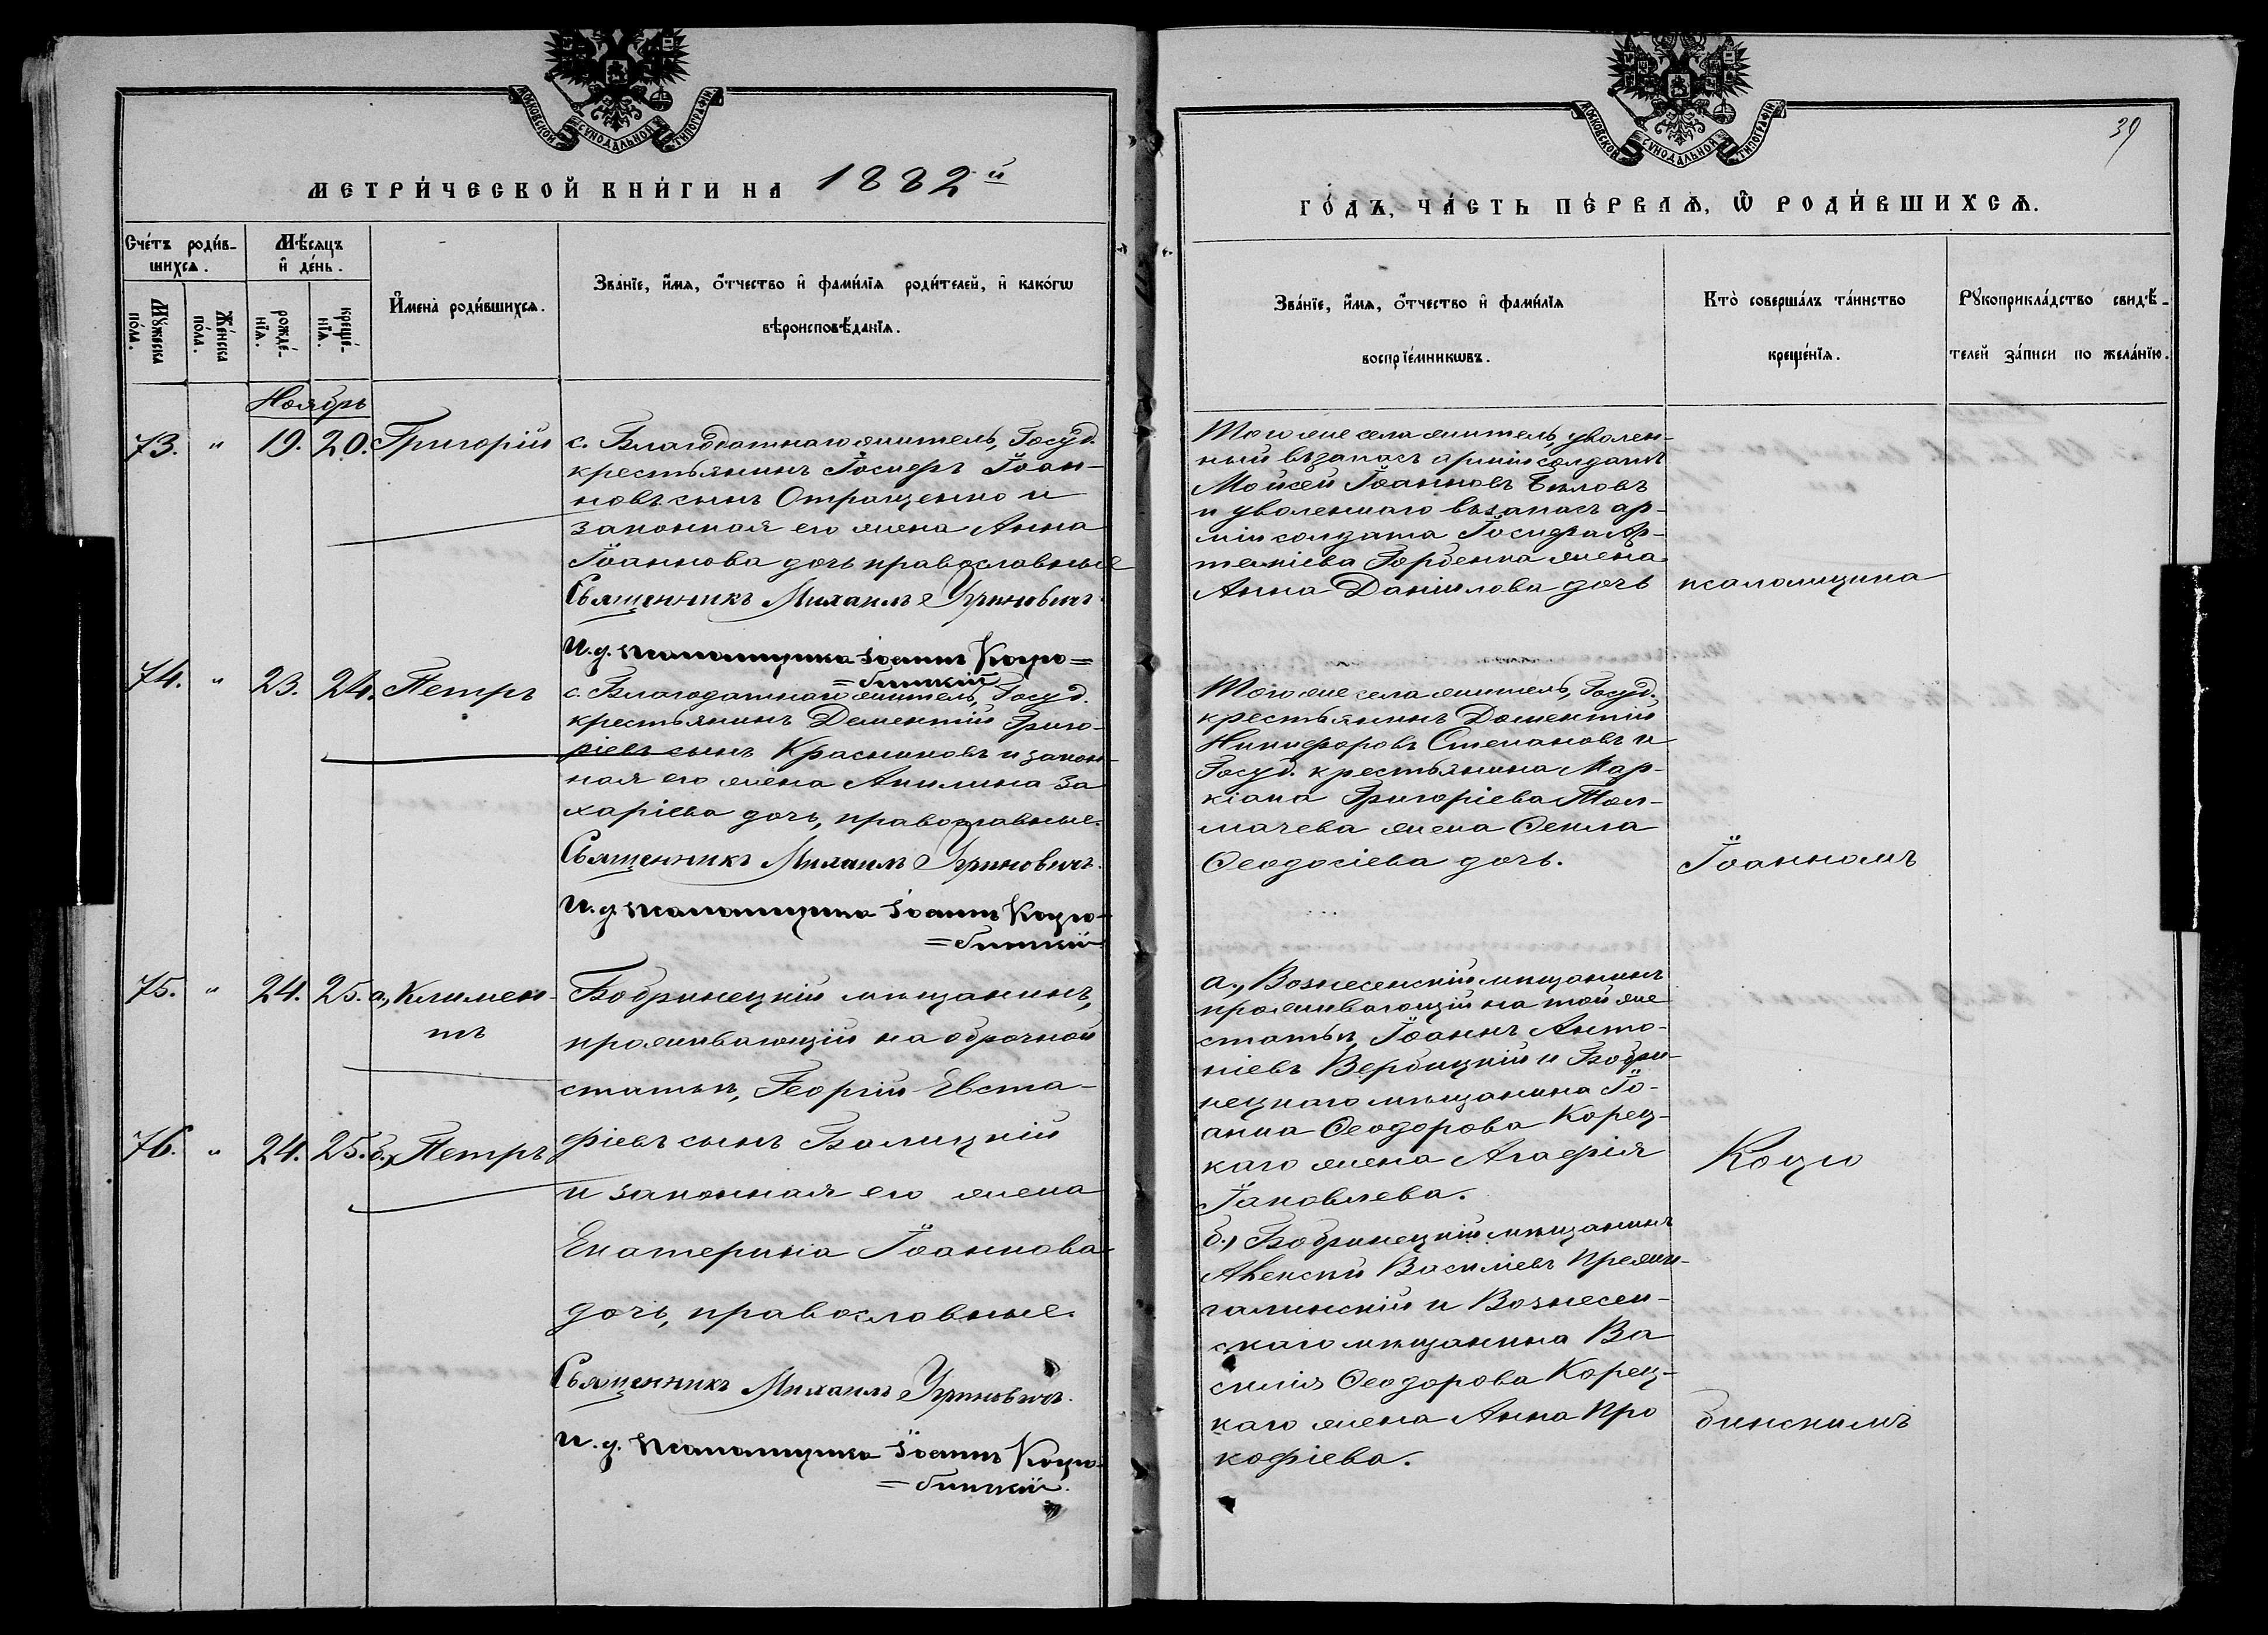 МОСКОВСКОЙ СѴНОДАЛЬНОЙ ТИПОГРАФІИ
МЕТРИ́ЧЕСКОЙ КНИ́ГИ НА 1882й
Сче́тъ роди́в-
шихсѧ.
Мѣ́сѧцъ
и҆ де́нь.
Мꙋ́жеска
по́ла.
Же́нска
по́ла.
рожде́-
нїѧ.
креще́-
нїѧ.
И҆мена̀ роди́вшихсѧ.
Зва́нїе, и҆́мѧ, ѻ҆́тчество и҆ фами́лїѧ роди́телей, и҆ како́гѡ
вѣроисповѣ́данїѧ.
Ноябрь
73. " 19. 20. Григорій
с. Благодатнаго житель, Госуд.
крестьянинъ Іосифъ Іоан-
новъ сынъ Отращенко и
законная его жена Анна
Іоаннова дочь православные
Священникъ Михаилъ Уриновичъ.
И. д. псаломщика Іоаннъ Коцю-
=бинскій
74. " 23. 24. Петръ
с. Благодатнаго житель, Госуд.
крестьянинъ Дементій Григо-
ріевъ сынъ Красниковъ и закон-
ная его жена Акилина За
харіева дочь, православные.
Священникъ Михаилъ Уриновичъ.
И. д. псаломщика Іоаннъ Коцю-
=бинскій
75. " 24. 25. а, Климен-
тъ
76. " 24. 25. б, Петръ
Бобринецкій мѣщанинъ,
проживающій на оброчной
статьѣ, Георгій Евста-
фіевъ сынъ Балицкій
и законная его жена
Екатерина Іоаннова
дочь, православные.
Священникъ Михаилъ Уриновичъ.
И. д. псаломщика Іоаннъ Коцю-
=бинскій.
МОСКОВСКОЙ СѴНОДАЛЬНОЙ ТИПОГРАФІИ
39
ГО́ДЪ, ЧА́СТЬ ПЕ́РВАѦ, Ѡ҆ РОДИ́ВШИХСѦ.
Зва́нїе, и҆́мѧ, ѻ҆́тчество и҆ фами́лїѧ
воспрїе́мникѡвъ.
Кто̀ соверша́лъ та́инство
креще́нїѧ.
Рꙋкоприкла́дство свидѣ́-
телей за́писи по жела́нїю.
Того же села житель, уволен-
ный въ запасъ арміи солдатъ
Мойсей Іоанновъ Бѣловъ
и уволеннаго въ запасъ ар-
міи солдата Іосифа Ар-
темієва Горбенка жена
Анна Даніилова дочь
псаломщика
Того же села житель, Госуд.
крестьянинъ Дометій
Никифоровъ Степановъ и
Госуд. крестьянина Мар-
кіана Григоріева Тол-
мачева жена Ѳекла
Ѳеодосіева дочь.
Іоанномъ
а, Вознесенскій мѣщанинъ
проживающій на той же
статьѣ, Іоаннъ Анто-
ніевъ Вербицкій и Бобри-
нецкаго мѣщанина Іо-
анна Ѳеодорова Корец-
каго жена Агафія
Іаковлева.
Коцю
б, Бобринецкій мѣщанинъ
Авксеній Василіевъ
и Вознесен-
скаго мѣщанина Ва
силія Ѳеодорова Корец-
каго жена Анна Про
кофіева.
бинскимъ